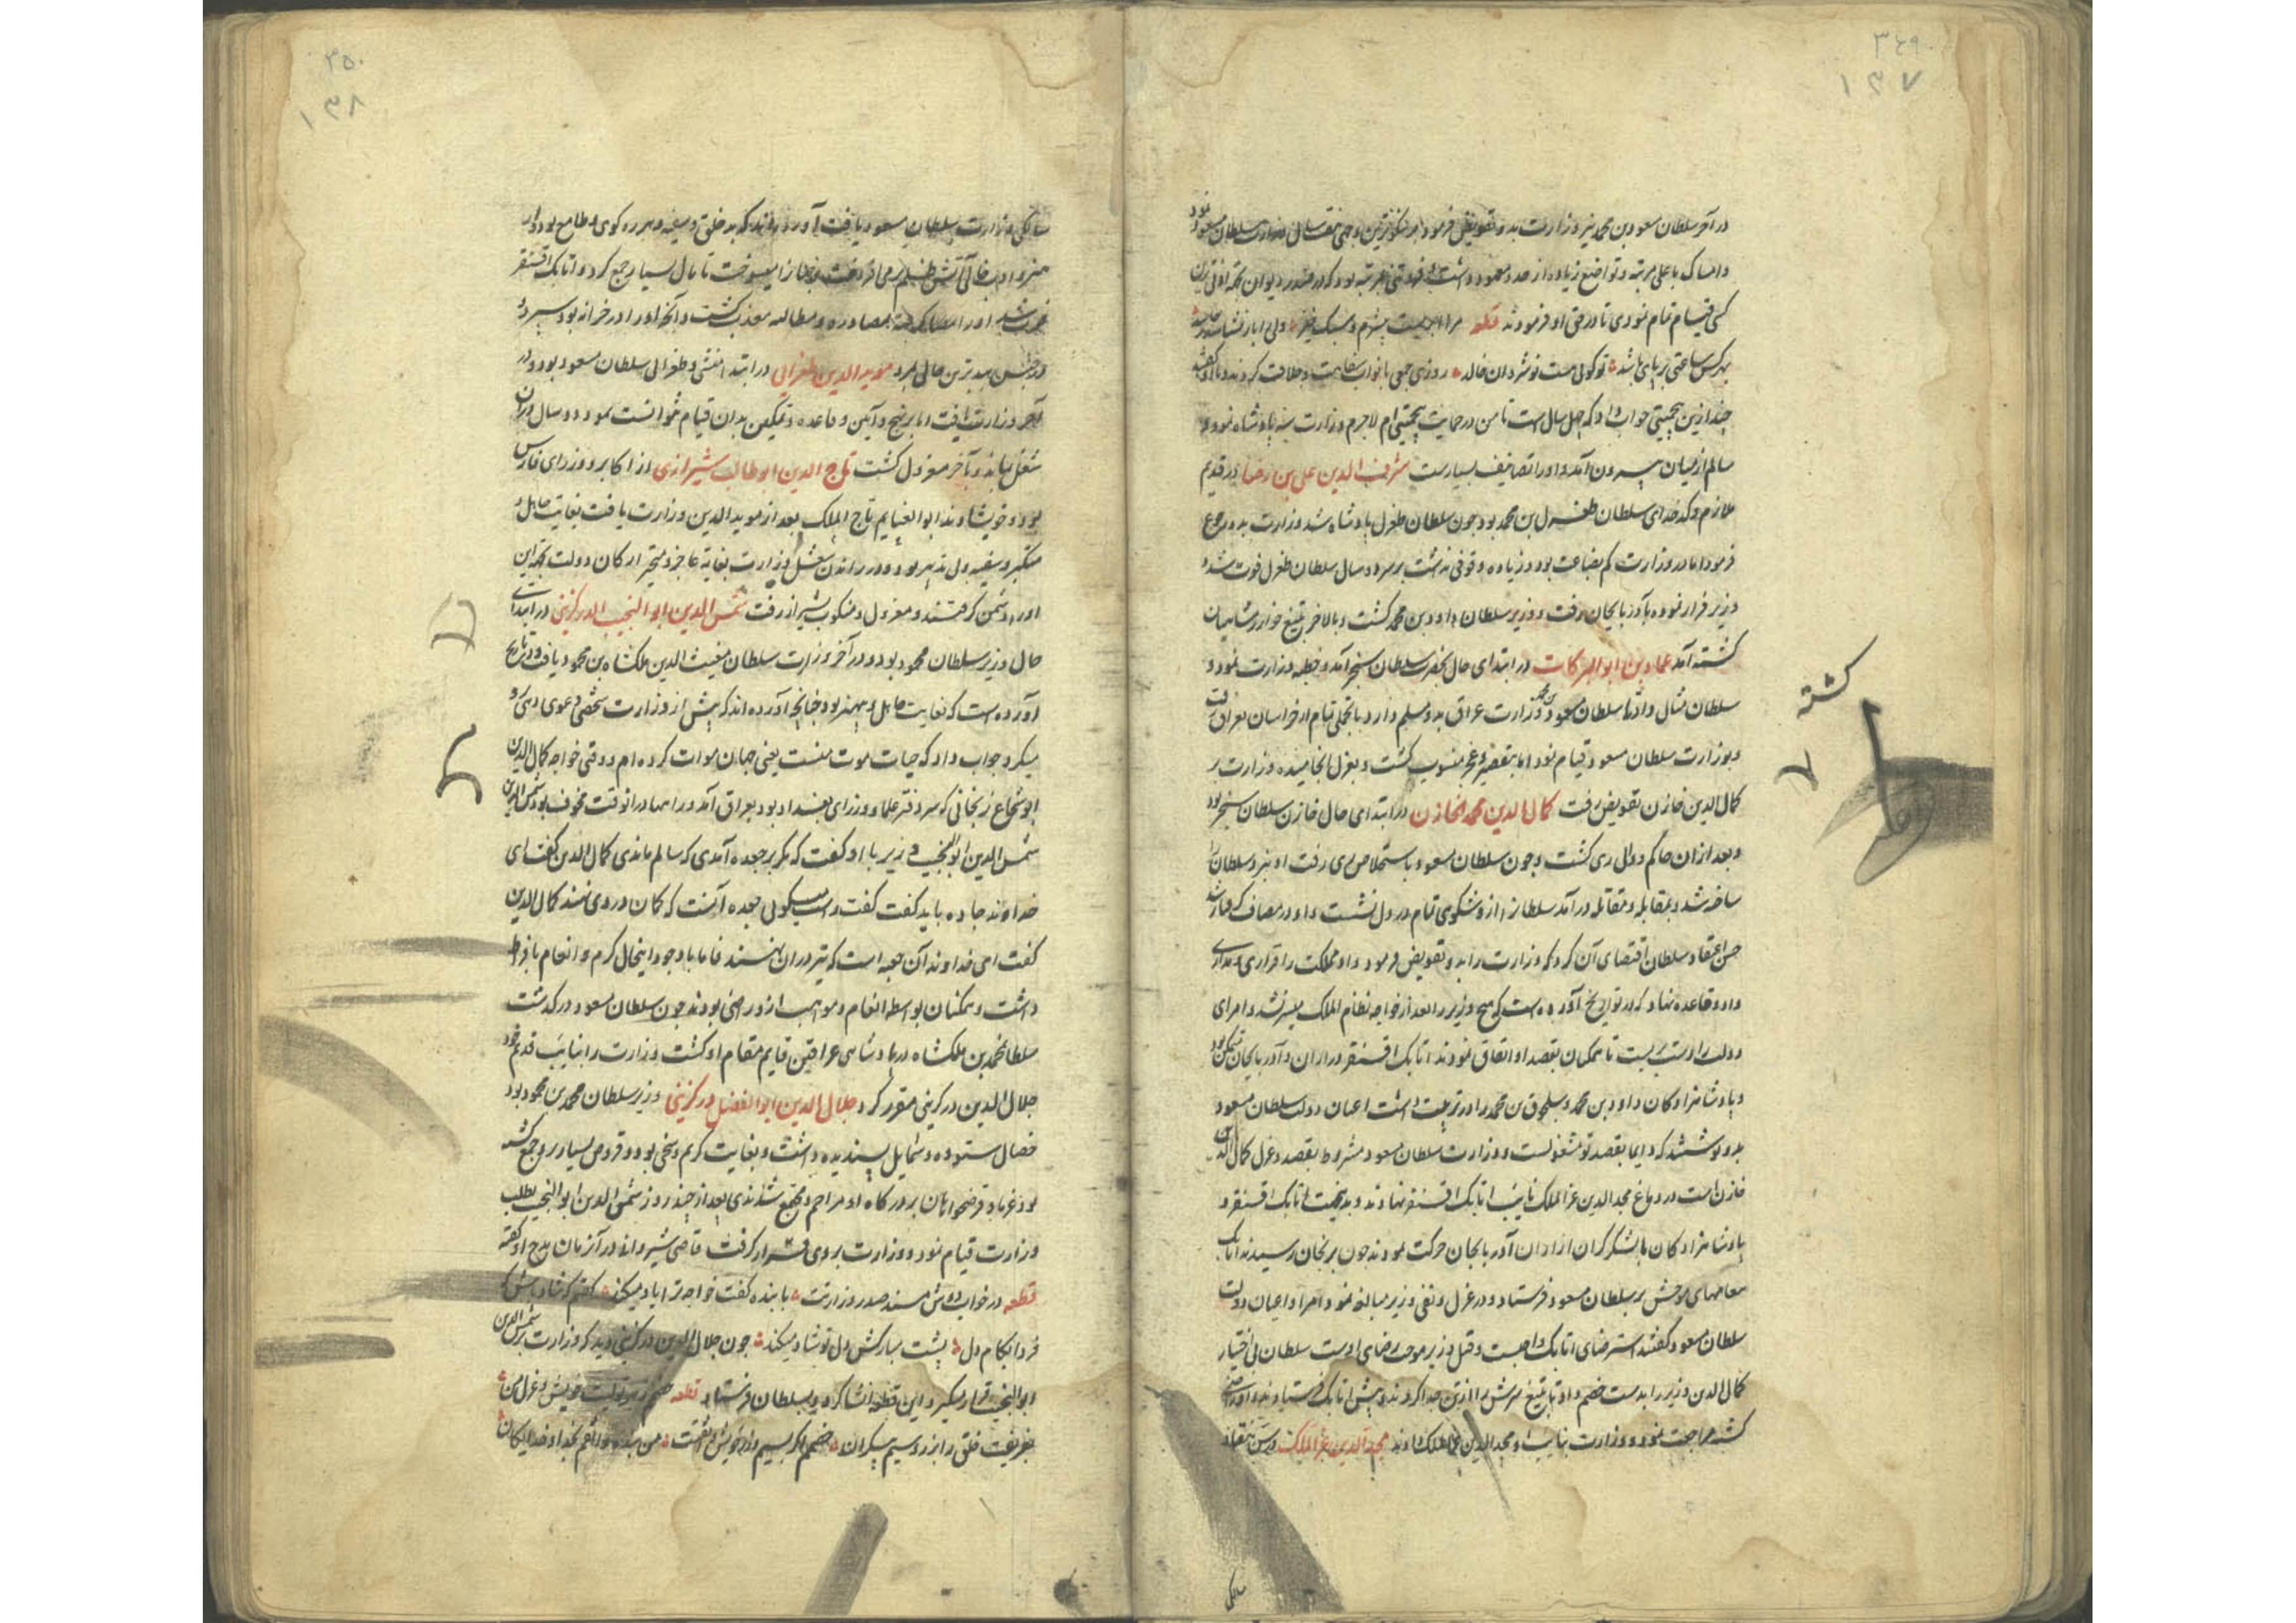 ۳۴۹
۱۳۷
در آخر سلطان مسعود بن محمد نیز وزارت بدو تفویض فرمود بر نیکوترین وجهی هفت سال وزارت سلطان مسعود نمود
و امساک با علی مرتبه و تواضع زیاده از حد و معهود داشت و فروتنی بمرتبه بود که در صدر دیوان جهة
کسی قیام تمام نمودی تا در حق او فرمودند قطعه و سبک خیز ولی
بهر کس ساعتی بر پای باشد تو کوئی هست نوشروان خالد روزی جمعی با نواب سفاهت و جلافت کردند
چند ازین بی حمیتی جواب داد که چهل سال است تا من در حمایت بی حمیتی ام لاجرم وزارت سه پادشاه نمود و
سالم از میان بیرون آمد و او را تصانیف بسیارست شرف الدین علی بن رضا در قدیم
ملازم و کدخدای سلطان طغرل بن محمد بود چون سلطان طغرل پادشاه شد وزارت بدو رجوع
فرمود اما در وزارت کم بضاعت بود و زیاده وقوفی نداشت بر سر دو سال سلطان طغرل فوت شد و
وزیر فرار نموده بآذربایجان رفت و وزیر سلطان داود بن محمد کشت و بالاخر بتیغ خوارزمشاهیان
کشته آمد عماد بن ابو البرکات در ابتدای حال بحضرت سلطان سنجر آمد و خطبه وزارت نمود و
سلطان مثال داد تا سلطان مسعود بن محمد وزارت عراق بدو مسلم دارد با تجملی تمام از خراسان بعراق رفت
و بوزارت سلطان مسعود قیام نمود اما بتقصیر و عجز منسوب کشت و بعزل انجامیده وزارت بر
کمال الدین خازن تفویض رفت کمال الدین محمد الخازن در ابتدای حال خازن سلطان سنجر بود
و بعد از آن حاکم و والی ری کشت و چون سلطان مسعود باستخلاص ری رفت او بنبرد سلطان را
ساخته شد و بمقابله و مقاتله درآمد سلطان را ازو شکوهی تمام در دل نشست و او در مصاف کرفتار شد
حسن اعتقاد سلطان اقتضای آن کرد که وزارت را بدو تفویض فرمود و او مملکت را قراری و مداری
داد و قاعده نهاد که در تواریخ آورده است که هیچ وزیر را بعد از خواجه نظام الملک میسر نشد و امرای
دولت را دست ببست تا همکنان بقصد او اتفاق نمودند اتابک اقسنقر در اران و آذربایجان متمکن بود
و پادشاهزادکان داود بن محمد و سلجوق بن محمد را در تربیت داشت اعیان دولت سلطان مسعود
بدو نوشتند که دایما بقصد تو مشغولست و وزارت سلطان مسعود مشروط بقصد و عزل کمال الدین
خازن است در دماغ مجد الدین عز الملک نایب اتابک اقسنقر نهادند و بدین جهت اتابک اقسنقر و
پادشاهزادکان با لشکر کران از اران آذربایجان حرکت نمودند چون بزنجان رسیدند اتابک
پیغامهای موحش بر سلطان مسعود فرستاد و در عزل و نفی وزیر مبالغه نمود امرا و اعیان دولت
سلطان مسعود کفتند استرضای اتابک واجبست و قتل وزیر موجب رضای اوست سلطان بی اختیار
کمال الدین وزیر را بدست خصم داد تا بتیغ سرش را از تن جدا کردند و پیش اتابک فرستادند و او راضی
کشته مراجعت نمود و وزارت بنایب او مجد الدین عز الملک دادند مجد الدین عز الملک
کشته
۳۵۰
۱۳۸
سالکی وزارت سلطان مسعود یافت آورده اند که بد خلق و سفیه و هرزه کوی و طامع بود و از
هنر و ادب خالی آتش ظلم بر می افروخت و خلق را میسوخت تا مال بسیار جمع کرد و اتابک اقسنقر
او را بمصادره و مطالبه معذب کشت و آنچه او را در خزانه بود سپرد و
در حبس ببدترین حالی بمرد موید الدین طغرائی در ابتدا منشی و طغرائی سلطان مسعود بود و در
آخر وزارت یافت اما بر نهج و آئین و قاعده و تمکین بدان قیام نتوانست نمود و دو سال در آن
شغل بماند و بآخر معزول کشت تاج الدین ابو طالب شیرازی از اکابر و وزرای فارس
بود و خویشاوند ابو الغنایم تاج الملک بعد از موید الدین وزارت یافت بغایت جاهل و
متکبر و سفیه و بی تدبیر بود و در راندن شغل وزارت بغایة عاجز و متحیر ارکان دولت بجهة این
او را دشمن کرفتند و معزول و منکوب بشیراز رفت شمس الدین ابو النجیب الدرکزینی در ابتدای
حال وزیر سلطان محمود بود و در آخر وزارت سلطان مغیث الدین ملکشاه بن محمود یافت و در تاریخ
آورده است که بغایت جاهل و بی هنر بود چنانچه آورده اند که پیش از وزارت شخصی دعوی دهی و
میکرد جواب داد که حیات موت منست یعنی جهان موات کرده ام و وقتی خواجه کمال الدین
ابو شجاع زنجانی که سر دفتر علما و وزرای بغداد بود بعراق آمد و راهها در آن وقت مخوف بود
شمس الدین ابو النجیب وزیر با او کفت که مکر بر جعده آمدی که سالم ماندی کمال الدین کفت ای
خداوند جاده باید کفت کفت راست میکوئی جعبه آنست که کمان در وی نهند کمال الدین
کفت ای خداوند آن جعبه است که تیر در آن نهند فاما با وجود اینحال کرم و انعام بافراط
داشت و همکنان بواسطه انعام و مواهب ازو راضی بودند چون سلطان مسعود در کذشت
سلطان محمد بن ملکشاه در پادشاهی عراقین قایم مقام او کشت وزارت را بنایب قدیم خود
جلال الدین درکزینی مقرر کرد جلال الدین ابو الفضل درکزینی وزیر سلطان محمد بن محمود بود
خصال ستوده و شمایل پسندیده داشت و بغایت کریم و سخی بود و قروض بسیار برو جمع کشته
بود غرما و قرضخواهان بر درکاه او مزاحم و مجتمع شدندی بعد از چند روز شمس الدین ابو النجیب بطلب
وزارت قیام نمود و وزارت بر وی قرار کرفت قاضی شیروان در آن زمان مدح او کفته
قطعه در خواب دوش مسند صدر وزارتت با بنده کفت خواجه ترا یاد میکند کفتم که شاد باش که
فردا بکام دل پشت مبارکش دل تو شاد میکند چون جلال الدین درکزینی دید که وزارت بر شمس الدین
ابو النجیب قرار میکیرد این قطعه انشا کرد و بسلطان فرستاد قطعه
بفریفت خلق را بزر و سیم بیکران خصمم اکر بسیم